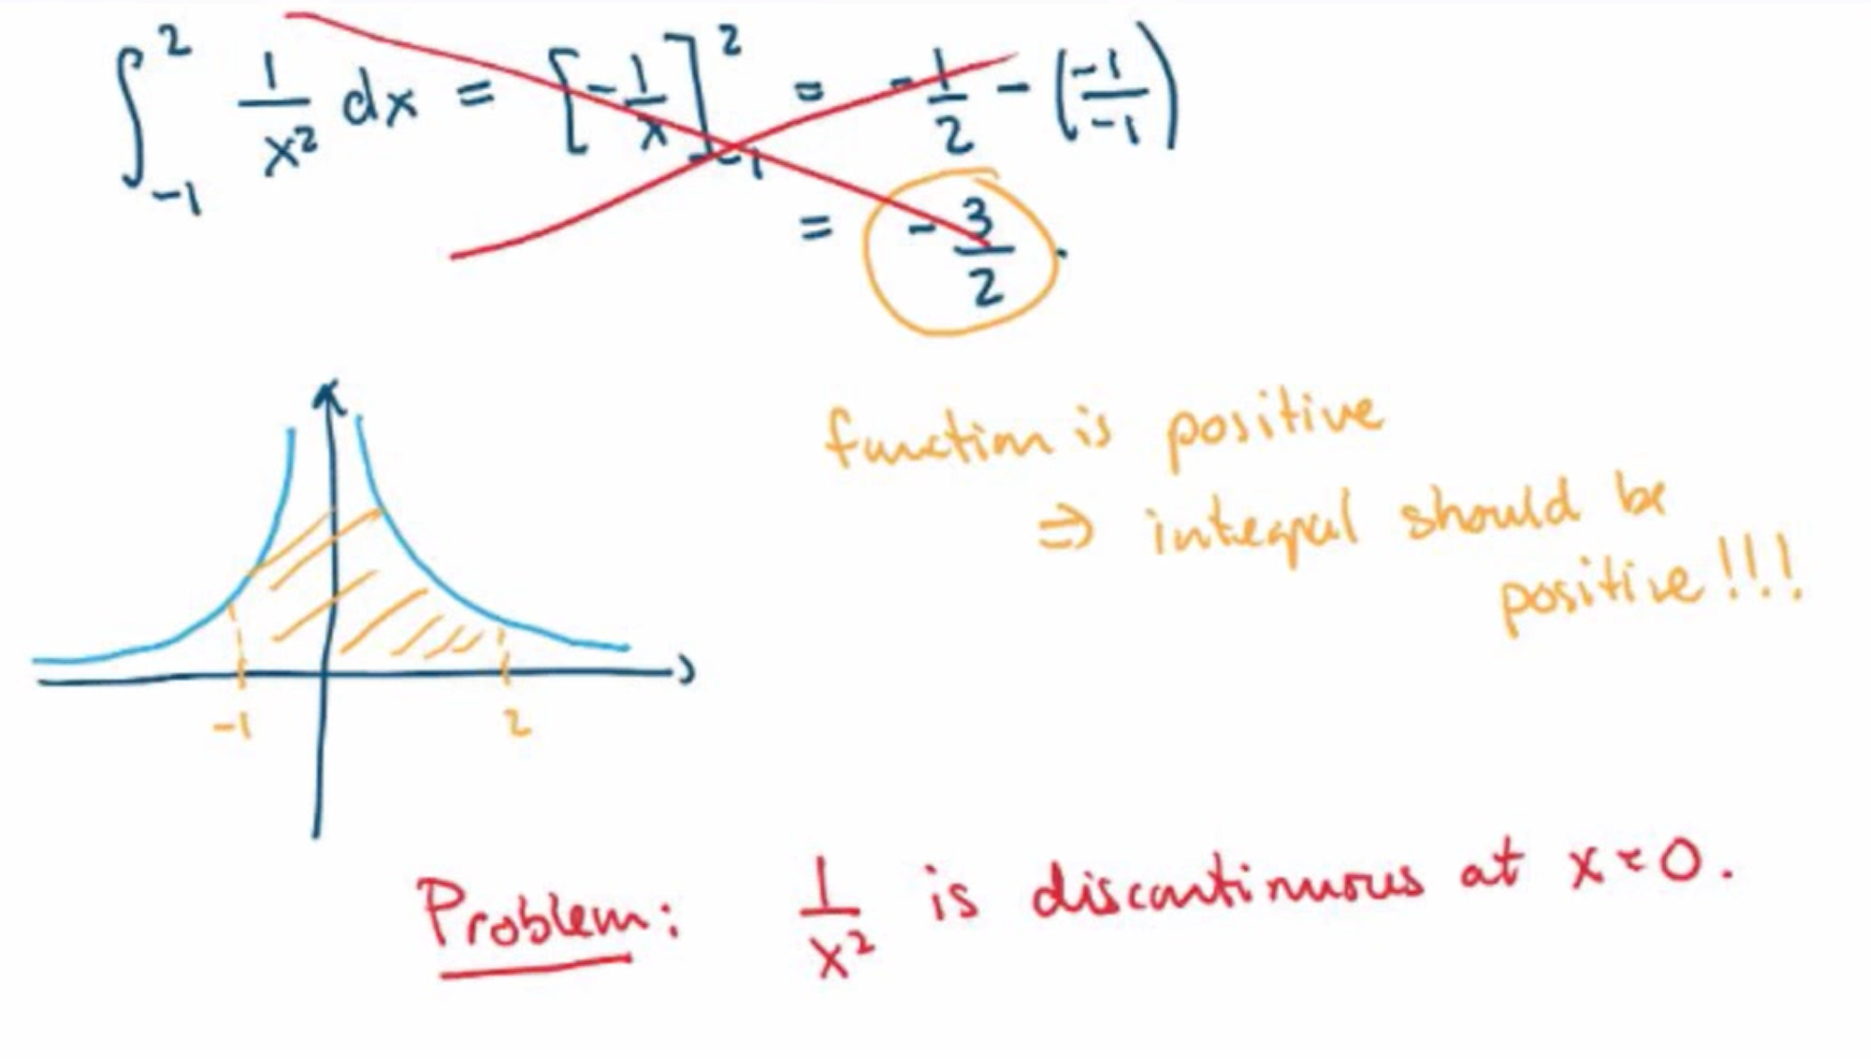 ∫_{-1}^{2} 1/x² dx = [-1/x]_{-1}^{2} = -1/2 - (-1/-1)
= -3/2.
function is positive
⇒ integral should be
positive!!!
-1 2
Problem: 1/x² is discontinuous at x=0.